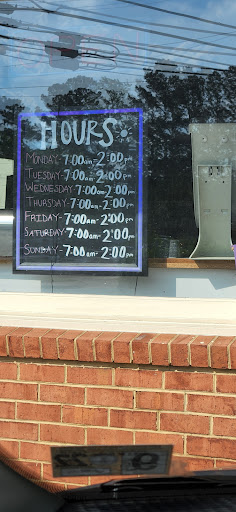 HOURS
MONDAY- 7:00am-2:00pm
TUESDAY- 7:00am-2:00pm
WEDNESDAY 7:00am-2:00pm
THURSDAY- 7:00am-2:00pm
FRIDAY- 7:00am-2:00pm
SATURDAY- 7:00am-2:00pm
SUNDAY- 7:00am-2:00pm